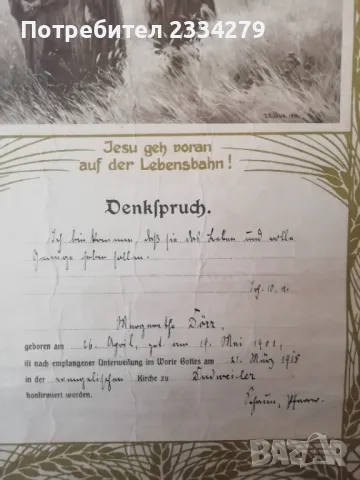 Потребител 2334279
Jesu geh voran
auf der Lebensbahn!
Denkspruch.
Ich bin kommen, daß sie das Leben und volle
Genüge haben sollen.
Joh. 10,
Margarethe Dörr
geboren am 26. April, get. am 19. Mai 1901,
ist nach empfangener Unterweisung im Worte Gottes am 21. März 1915
in der evangelischen Kirche zu Dudweiler
konfirmiert worden.
Pfarrer.
bazar